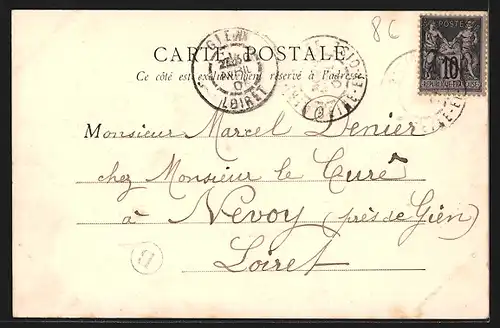 8C
CARTE POSTALE
Ce côté est exclusivement réservé à l'adresse
POSTES
10
REPUBLIQUE FRANÇAISE
GIEN
LOIRET
Monsieur Marcel Denier
chez Monsieur le Curé
à Nevoy (près de Gien)
Loiret